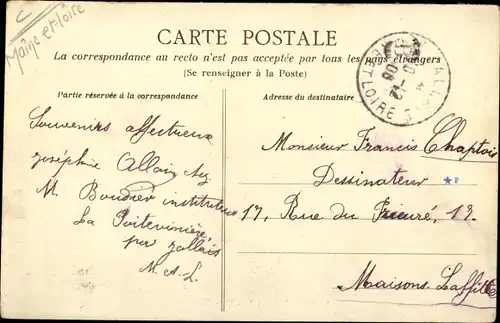 Maine et Loire
CARTE POSTALE
La correspondance au recto n'est pas acceptée par tous les pays étrangers
(Se renseigner à la Poste)
Partie réservée à la correspondance
Adresse du destinataire
Souvenirs affectueux
Joséphine Allain chez
M. instituteur
La Poitevinière
par Jallais
M.-et-L.
Monsieur Francis
Dessinateur
17, Rue du Prieuré, 17.
Maisons Laffitte
10-12
08
ET LOIRE